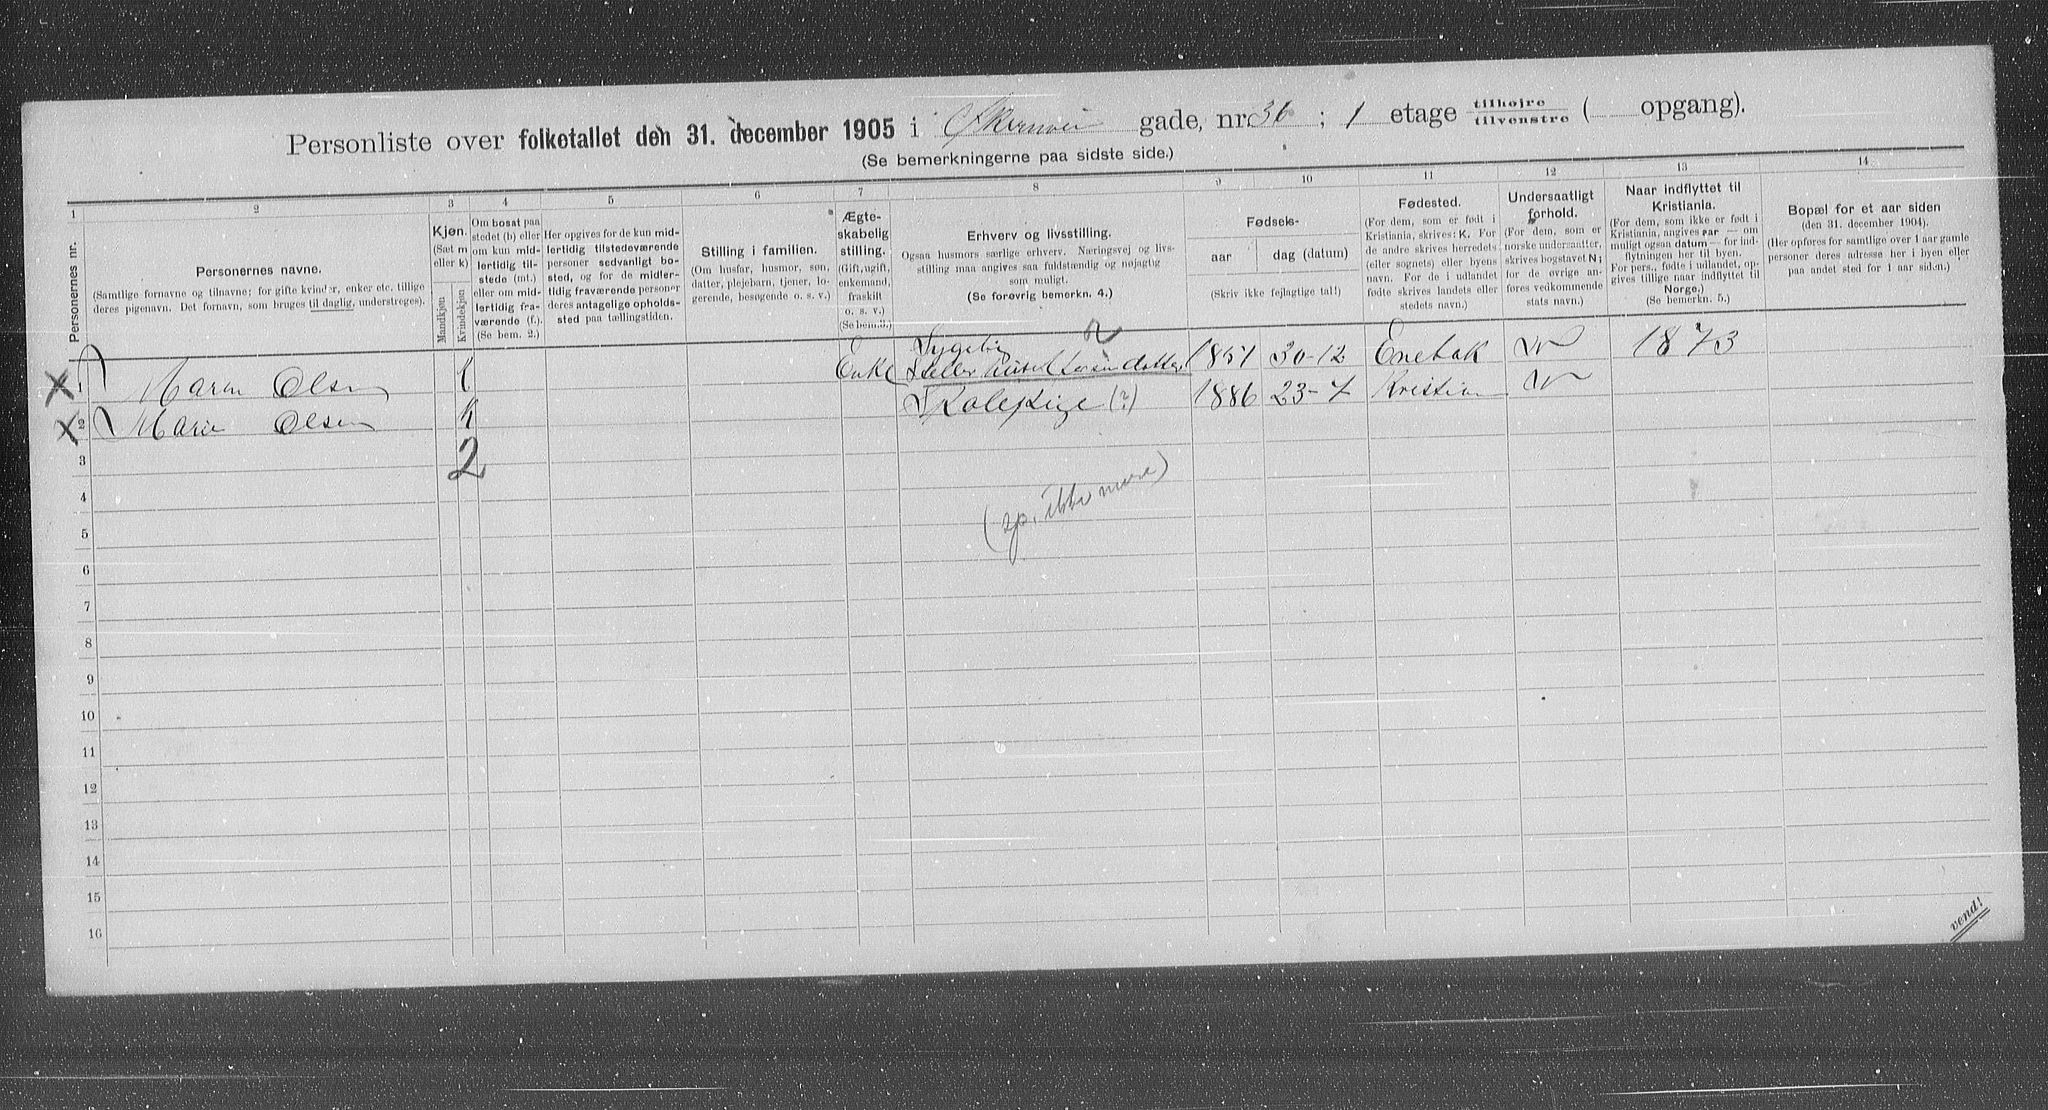 Personliste over folketallet den 31. december 1905 i gade, nr. 36 ; 1 etage tilhøjre / tilvenstre ( opgang).
(Se bemerkningerne paa sidste side.)
1 2 3 4 5 6 7 8 9 10 11 12 13 14
Personernes nr.
Personernes navne.
(Samtlige fornavne og tilnavne; for gifte kvinder, enker etc. tillige
deres pigenavn. Det fornavn, som bruges til daglig, understreges).
Kjøn.
(Sæt m
eller k)
Mandkjøn
Kvindekjøn
Om bosat paa
stedet (b) eller
om kun mid-
lertidig til-
stede (mt.)
eller om mid-
lertidig fra-
værende (f.).
(Se bem. 2.)
Her opgives for de kun mid-
lertidig tilstedeværende
personer sedvanligt bo-
sted, og for de midler-
tidig fraværende personer
deres antagelige opholds-
sted paa tællingstiden.
Stilling i familien.
(Om husfar, husmor, søn,
datter, plejebarn, tjener, lo-
gerende, besøgende o. s. v.)
Ægte-
skabelig
stilling.
(Gift, ugift,
enkemand,
fraskilt
o. s. v.)
(Se bem. 3.)
Erhverv og livsstilling.
Ogsaa husmors særlige erhverv. Næringsvej og livs-
stilling maa angives saa fuldstændig og nøjagtig
som muligt.
(Se forøvrig bemerkn. 4.)
Fødsels-
aar dag (datum)
(Skriv ikke fejlagtige tal!)
Fødested.
(For dem, som er født i
Kristiania, skrives: K. For
de andre skrives herredets
(eller sognets) eller byens
navn. For de i udlandet
fødte skrives landets eller
stedets navn.)
Undersaatligt
forhold.
(For dem, som er
norske undersaatter,
skrives bogstavet N;
for de øvrige an-
føres vedkommende
stats navn.)
Naar indflyttet til
Kristiania.
(For dem, som ikke er født i
Kristiania, angives aar — om
muligt ogsaa datum — for ind-
flytningen her til byen.
For pers., fødte i udlandet, op-
gives tillige naar indflyttet til
Norge.)
(Se bemerkn. 5.)
Bopæl for et aar siden
(den 31. december 1904).
(Her opføres for samtlige over 1 aar gamle
personer deres adresse her i byen eller
paa andet sted for 1 aar siden.)
1 Maren Olsen k Enke 1851 30-12 Enebak N 1873
2 Marie Olsen k Skolepige (?) 1886 23-7 Kristian N
3 2
4
(sp. ikke mere)
5
6
7
8
9
10
11
12
13
14
15
16
vend!